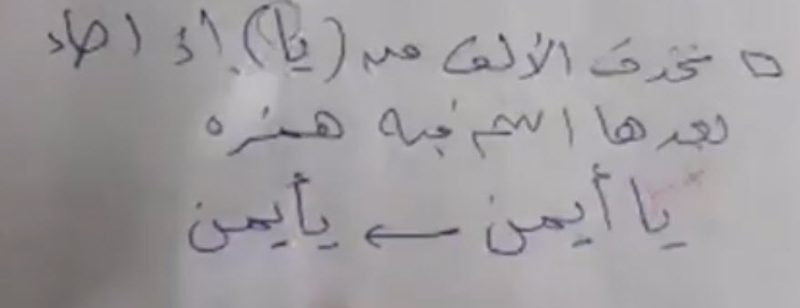 تحذف الألف من (يا) إذا جاء
بعدها اسم فيه همزه
يا أيمن ← يأيمن